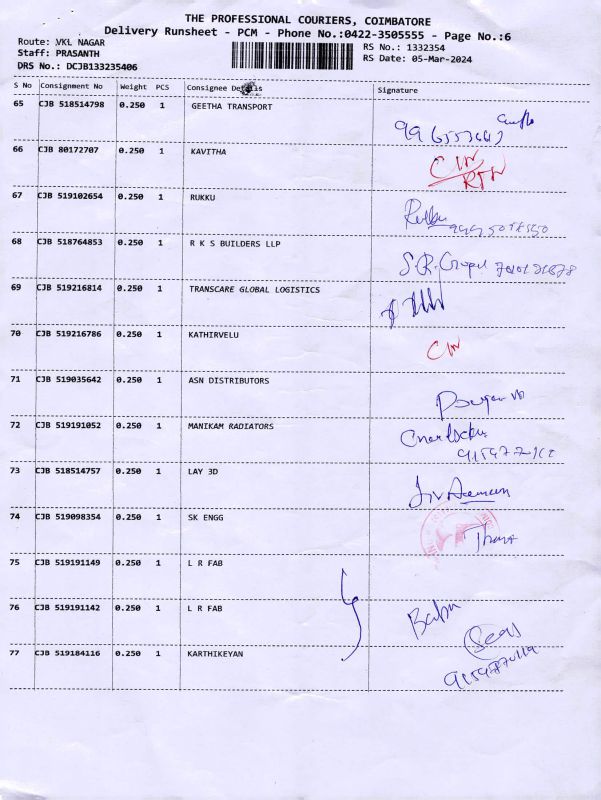 THE PROFESSIONAL COURIERS, COIMBATORE
Delivery Runsheet - PCM - Phone No.:0422-3505555 - Page No.:6
Route: VKL NAGAR
Staff: PRASANTH
DRS No.: DCJB133235406
RS No.: 1332354
RS Date: 05-Mar-2024
S No Consignment No Weight PCS Consignee Details Signature
65 CJB 518514798 0.250 1 GEETHA TRANSPORT
66 CJB 80172707 0.250 1 KAVITHA
67 CJB 519102654 0.250 1 RUKKU
68 CJB 518764853 0.250 1 R K S BUILDERS LLP
69 CJB 519216814 0.250 1 TRANSCARE GLOBAL LOGISTICS
70 CJB 519216786 0.250 1 KATHIRVELU
71 CJB 519035642 0.250 1 ASN DISTRIBUTORS
72 CJB 519191052 0.250 1 MANIKAM RADIATORS
73 CJB 518514757 0.250 1 LAY 3D
74 CJB 519098354 0.250 1 SK ENGG
75 CJB 519191149 0.250 1 L R FAB
76 CJB 519191142 0.250 1 L R FAB
Babu
77 CJB 519184116 0.250 1 KARTHIKEYAN